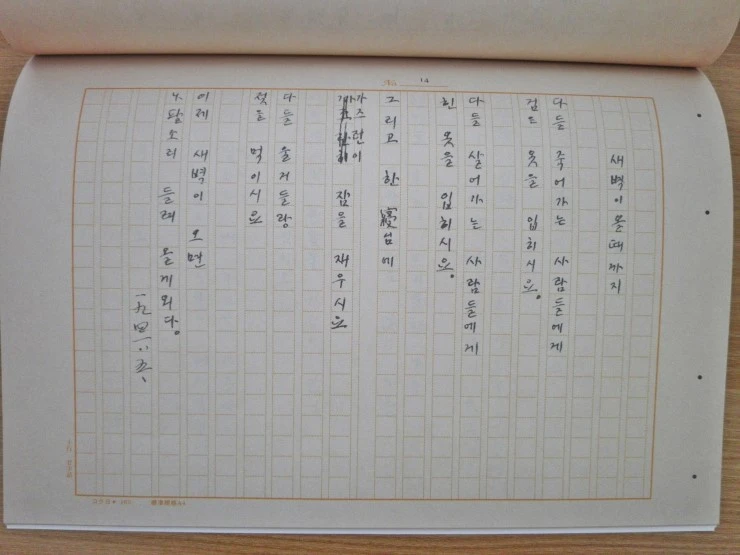 14
새벽이 올때 까지
다들 죽어가는 사람들에게
검은 옷을 입히시요.
다들 살어가는 사람들에게
힌 옷을 입히시요.
그리고 한 寢台에
가즈런이
잠을 재우시요
다들 울거들랑
젖을 먹이시요
이제 새벽이 오면
나팔소리 들려 올게외다.
一九四一·五、